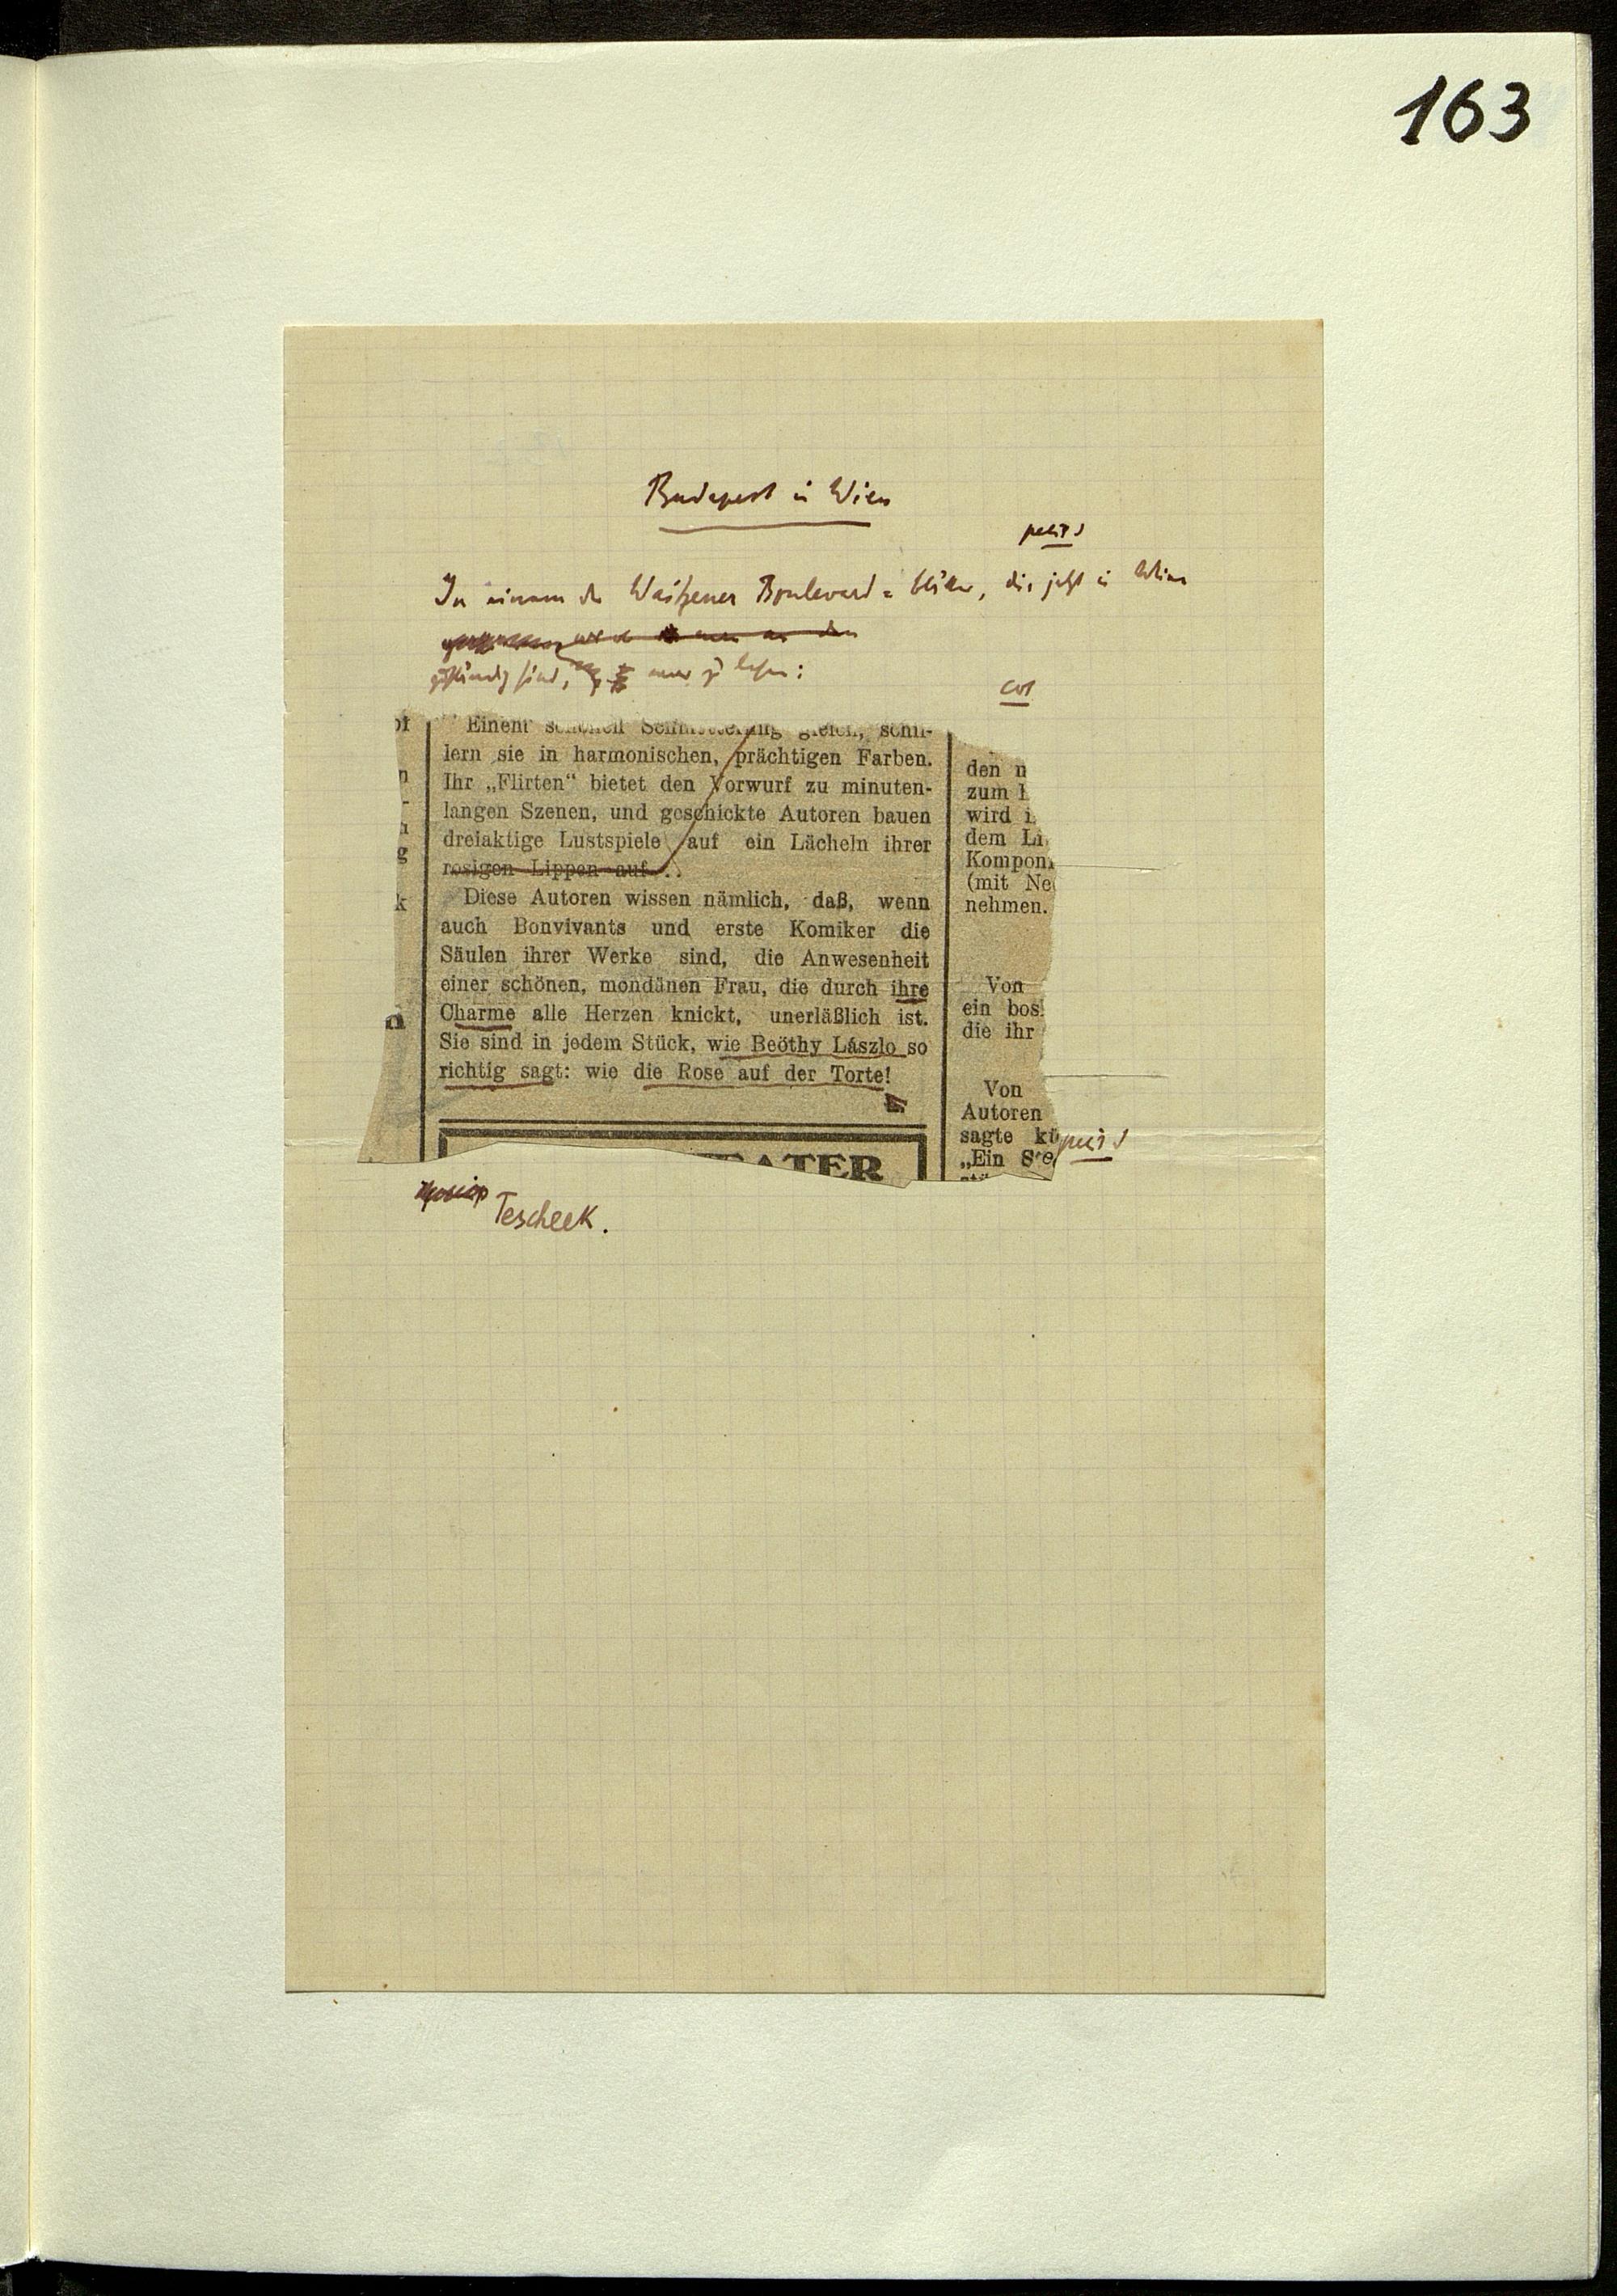 163
Budapest in Wien
petit
In einem der Waitzener Boulevard=blätter, die jetzt in Wien
zuständig sind, man zu lesen:
Einem schönen Schmetterling gleich, schil-
lern sie in harmonischen, prächtigen Farben.
Ihr „Flirten“ bietet den Vorwurf zu minuten-
langen Szenen, und geschickte Autoren bauen
dreiaktige Lustspiele auf ein Lächeln ihrer
rosigen Lippen auf...
Diese Autoren wissen nämlich, daß, wenn
auch Bonvivants und erste Komiker die
Säulen ihrer Werke sind, die Anwesenheit
einer schönen, mondänen Frau, die durch ihre
Charme alle Herzen knickt, unerläßlich ist.
Sie sind in jedem Stück, wie Beöthy Lászlo so
richtig sagt: wie die Rose auf der Torte!
EATER
n
g
k
den n
zum
wird i
dem Li
Kompon
(mit Ne
nehmen.
Von
ein bos
die ihr
Von
Autoren
sagte kö
„Ein
petit
Tescheek.